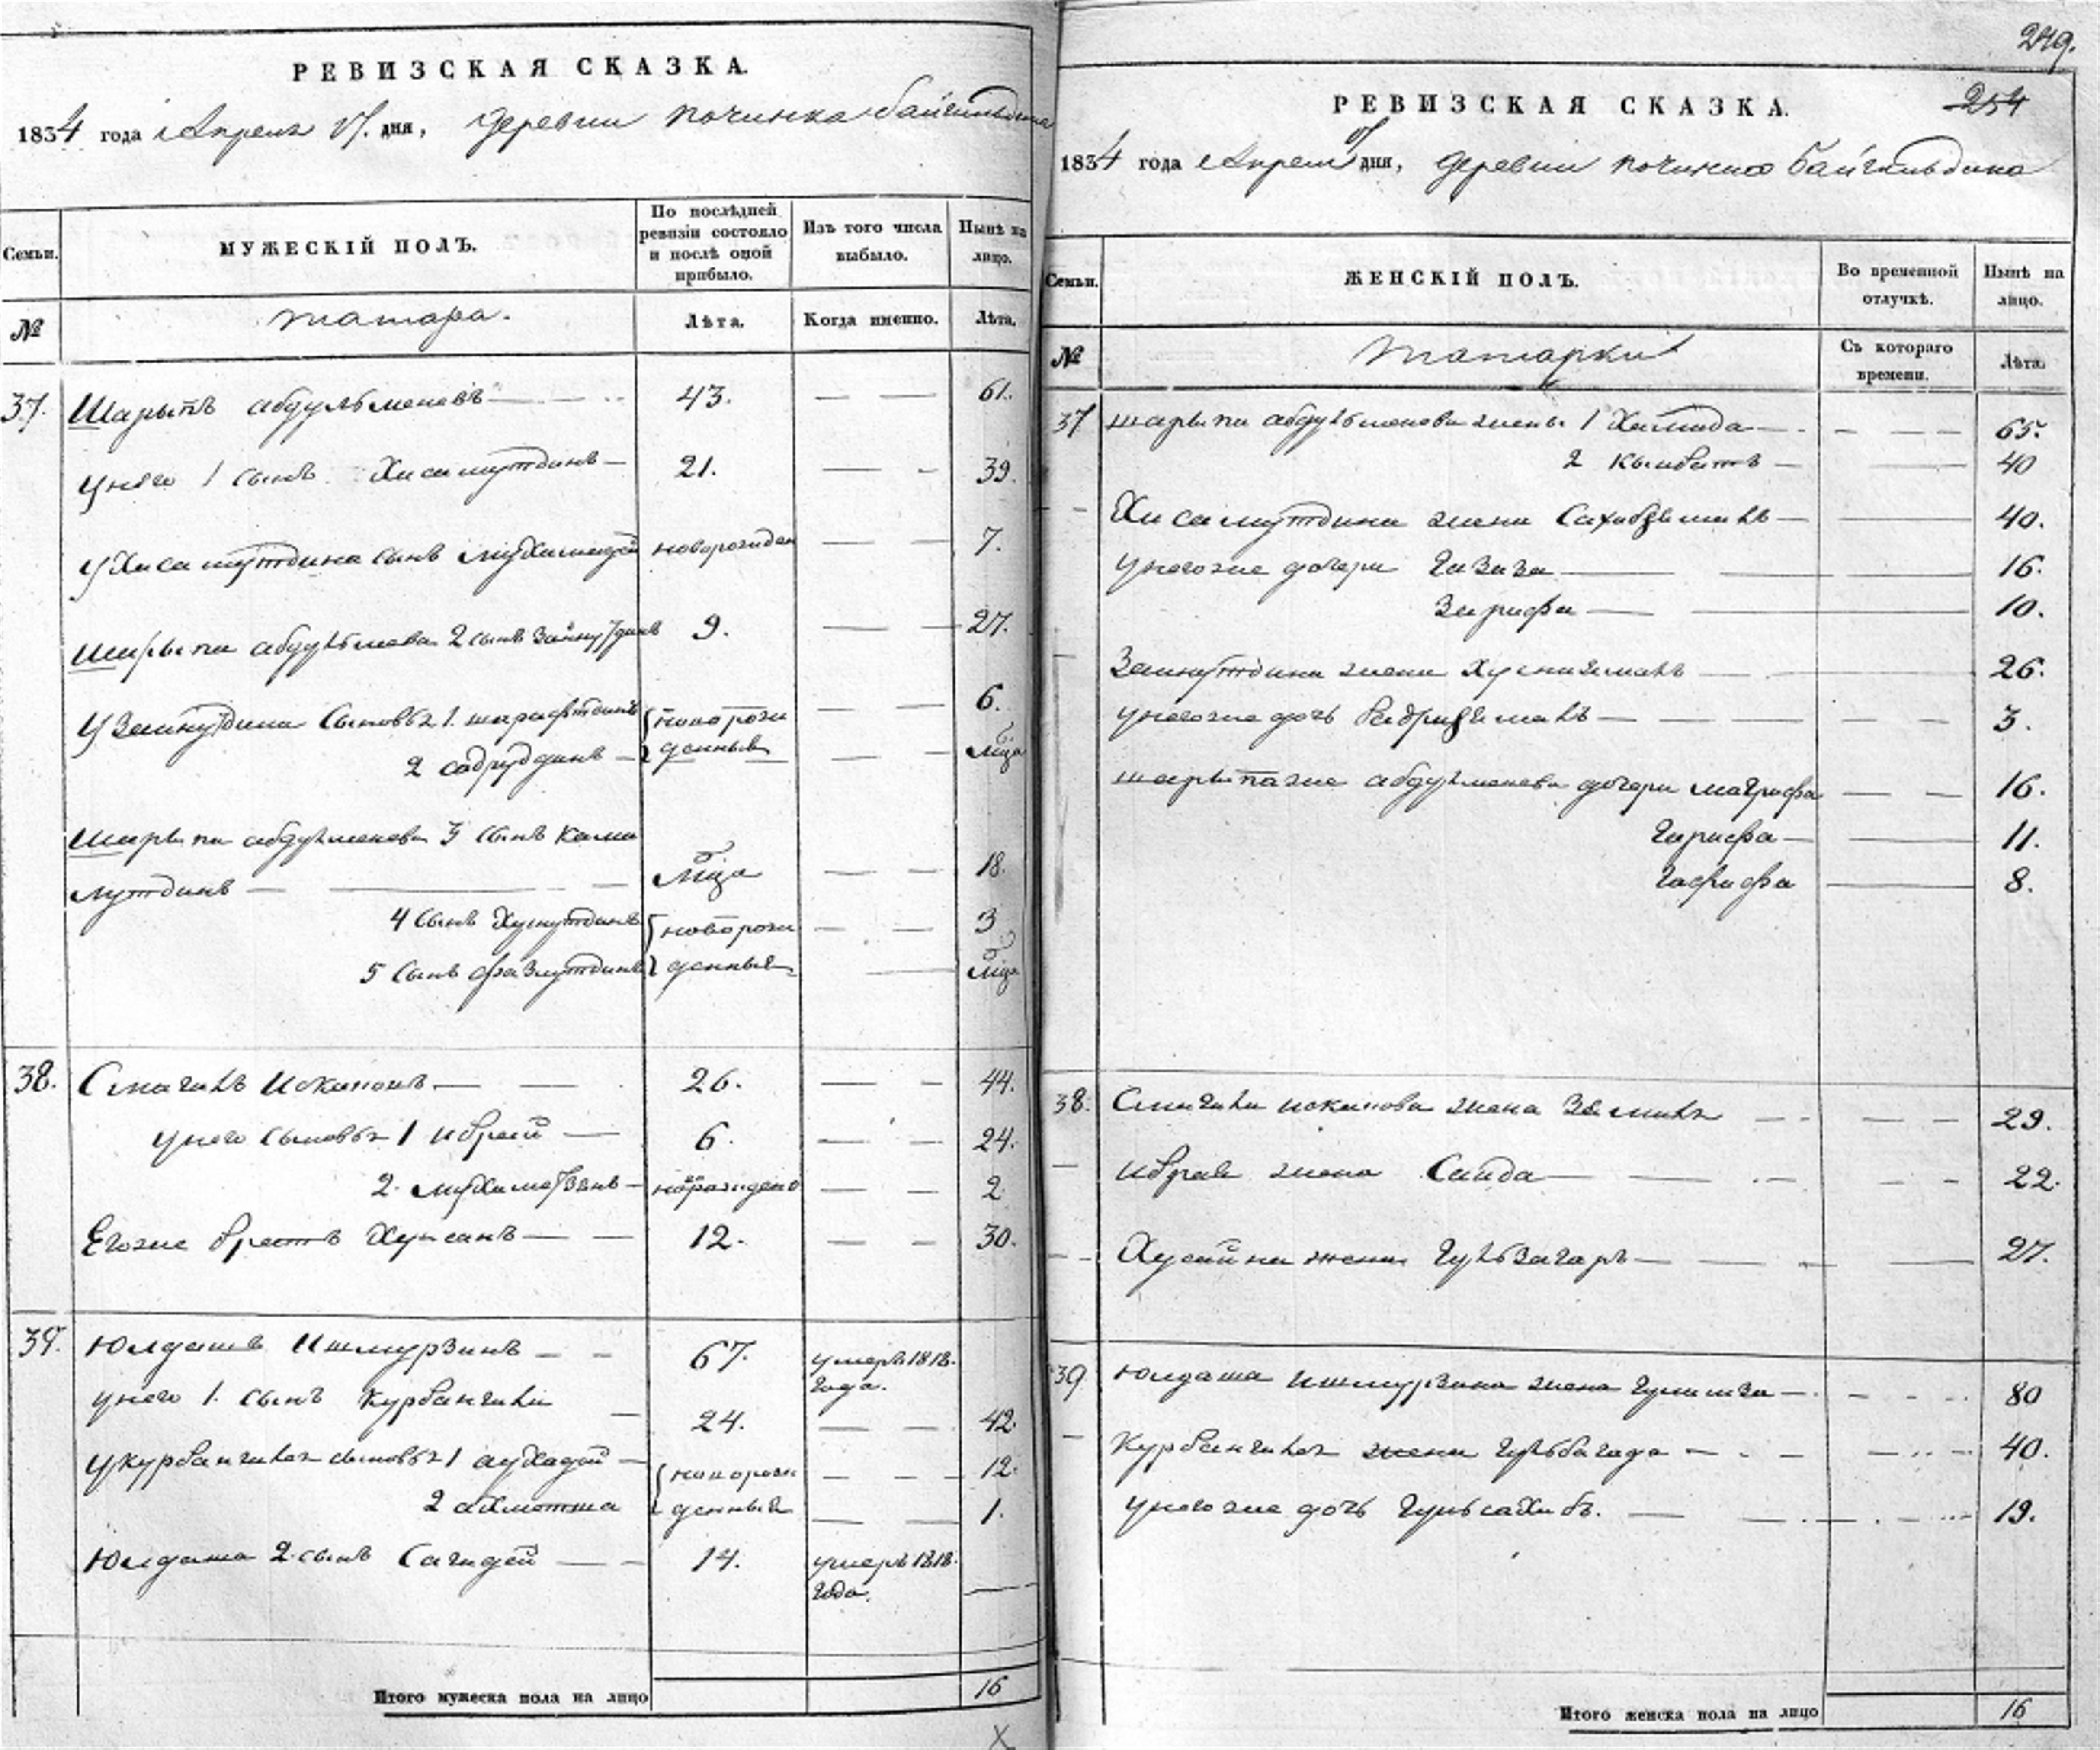 РЕВИЗСКАЯ СКАЗКА.
1834 года Апреля дня, деревни починка байгильдина
Семьи.
МУЖЕСКІЙ ПОЛЪ.
По послѣдней ревизіи состояло и послѣ оной прибыло.
Изъ того числа выбыло.
Нынѣ на лицо.
№
татара.
Лѣта.
Когда именно.
Лѣта.
37. Шарыпъ абдульменевъ 43. 61.
у него 1 сынъ Хисамутдинъ 21. 39.
у Хисамутдина сынъ новорожден 7.
Шарыпа 2 сынъ Зайнутдинъ 9. 27.
У Зайнутдина сыновья 1. шарафутдинъ новорож 6.
2 садрудинъ денныя мѣца
Шарыпа абдулменева 3 сынъ Кама
лутдинъ мѣца 18.
4 сынъ новорож 3
5 сынъ фазлутдинъ денныя мѣца
38. Смагилъ Искаковъ 26. 44.
у него сыновья 1 ибрай 6. 24.
2. новорождено 2
Егоже братъ Хусаинъ 12. 30.
39. Юлдашъ Ишмурзинъ 67. умеръ 1818.
года.
у него 1. сынъ Курбангали 24. 42.
у курбангалея сыновья 1 аухадей новорож 12.
2 ахметша денныя 1.
Юлдаша 2 сынъ Сагидей 14. умеръ 1818.
года.
Итого мужеска пола на лицо 16
249.
254
РЕВИЗСКАЯ СКАЗКА.
1834 года Апреля дня, деревни починка байгильдина
Семьи.
ЖЕНСКІЙ ПОЛЪ.
Во временной отлучкѣ.
Нынѣ на лицо.
№
татарки
Съ котораго времени.
Лѣта.
37 шарыпа абдульменева жены 1 Хамида 65.
2 40
Хисамутдина жена 40.
у негоже дочери Газиза 16.
Зарифа 10.
Зайнутдина жена 26.
у негоже дочь 3.
шарыпа же абдулменева дочери магрифа 16.
Гарифа 11.
8.
38. Смагила искакова жена 29.
ибрая жена Саида 22.
Хусаина жена 27.
39 Юлдаша ишмурзина жена 80
Курбангалея жена 40.
у него же дочь Гульсахибъ. 19.
Итого женска пола на лицо 16